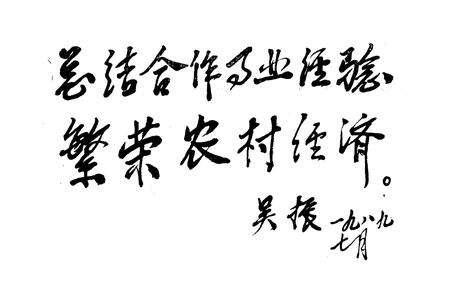 总结合作事业经验
繁荣农村经济。
吴振 一九八九
七月